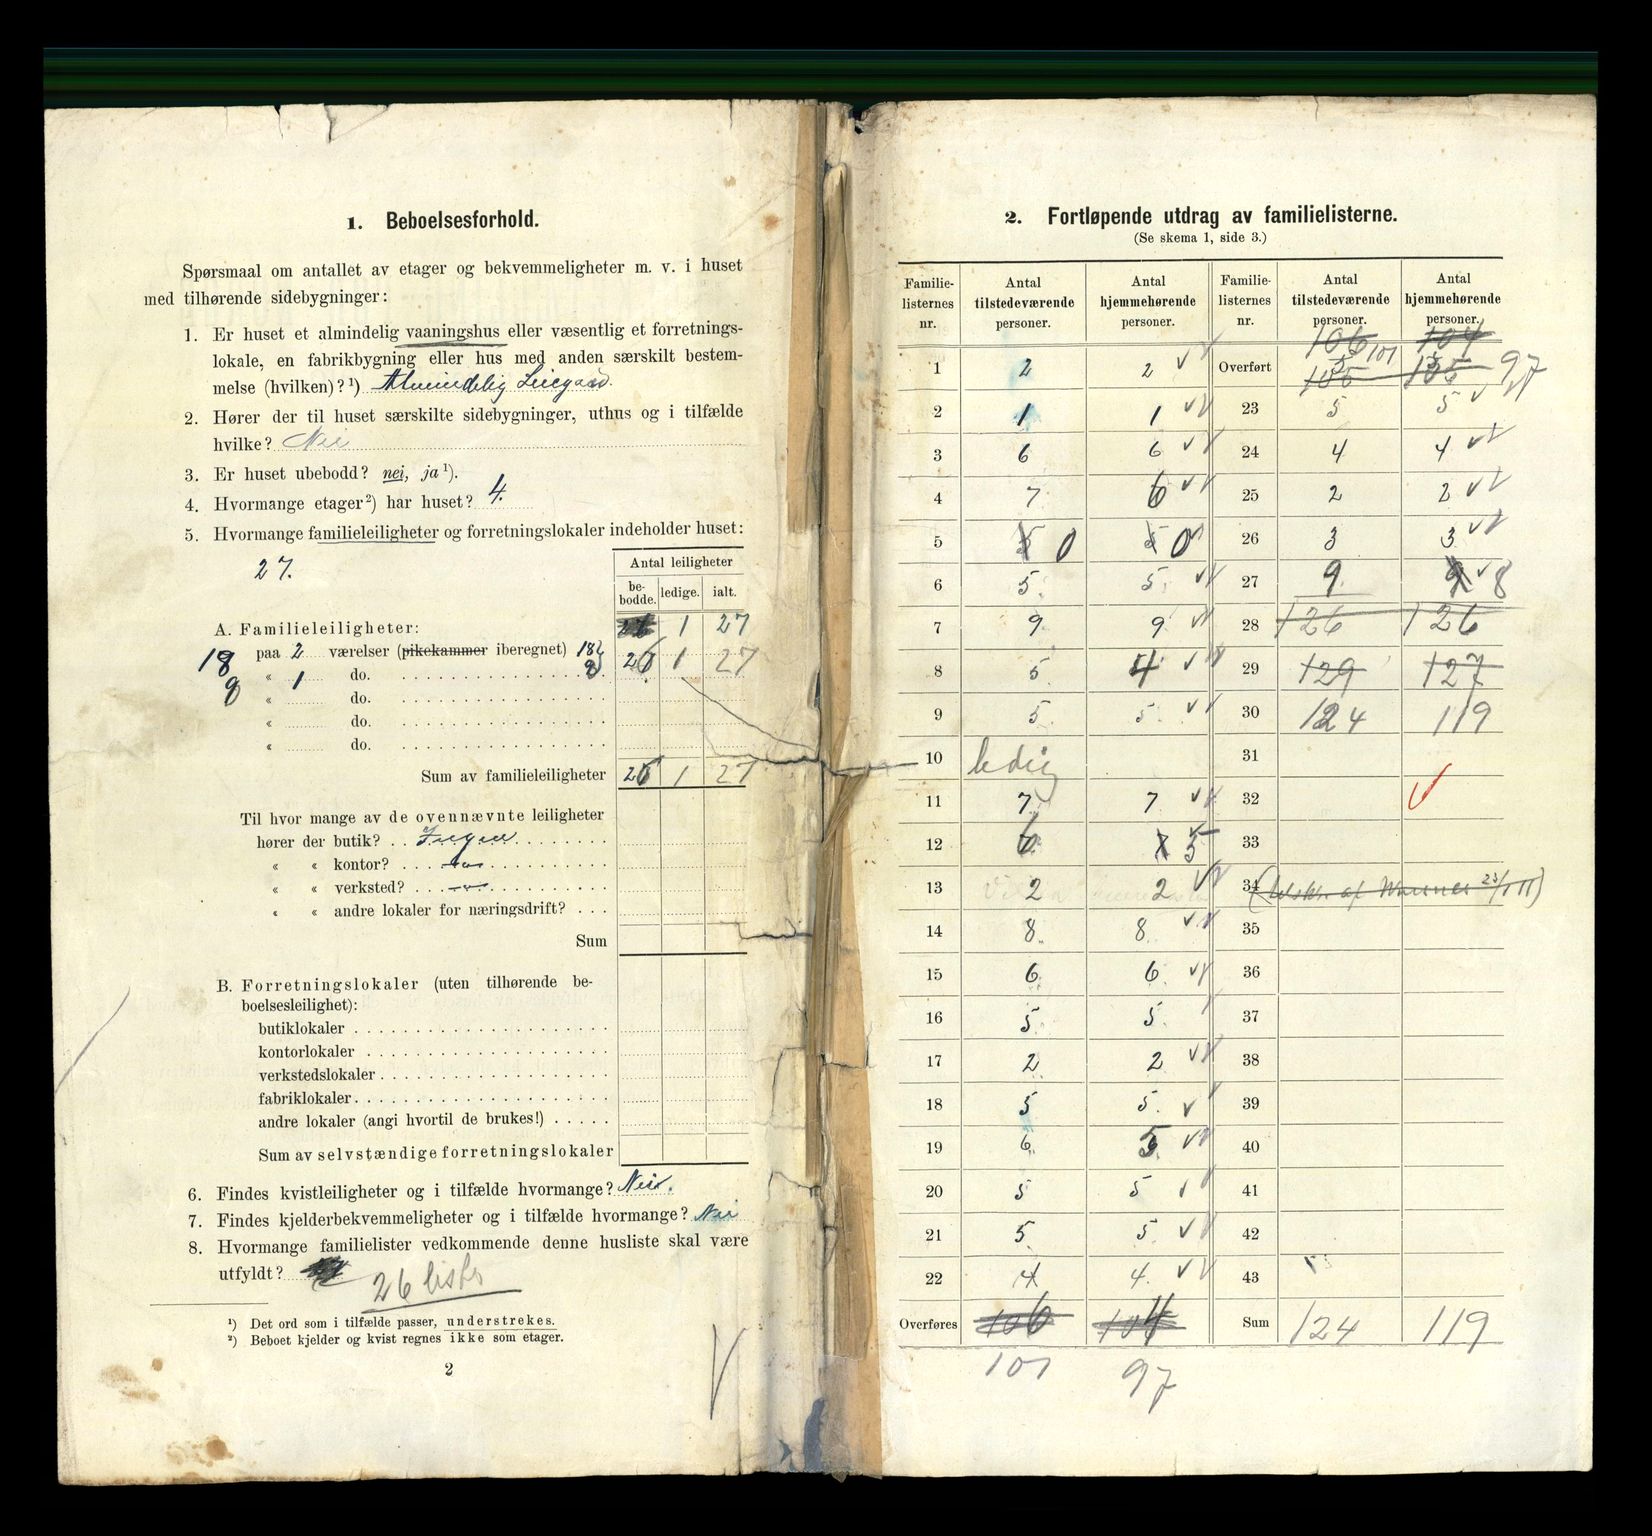 1. Beboelsesforhold.
Spørsmaal om antallet av etager og bekvemmeligheter m. v. i huset
med tilhørende sidebygninger:
1. Er huset et almindelig vaaningshus eller væsentlig et forretnings-
lokale, en fabrikbygning eller hus med anden særskilt bestem-
melse (hvilken)?¹) Almindelig Leiegaard.
2. Hører der til huset særskilte sidebygninger, uthus og i tilfælde
hvilke? Nei
3. Er huset ubebodd? nei, ja¹).
4. Hvormange etager²) har huset? 4.
5. Hvormange familieleiligheter og forretningslokaler indeholder huset:
27.
Antal leiligheter
be-bodde. ledige. ialt.
A. Familieleiligheter: 1 27
18 paa 2 værelser (pikekammer iberegnet) 18 26 1 27
8 « 1 do. 8
« do.
« do.
« do.
Sum av familieleiligheter 26 1 27
Til hvor mange av de ovennævnte leiligheter
hører der butik? . . Ingen
« « kontor? . . . -"-
« « verksted? . . . -"-
« « andre lokaler for næringsdrift? . . .
Sum
B. Forretningslokaler (uten tilhørende be-
boelsesleilighet):
butiklokaler
kontorlokaler
verkstedslokaler
fabriklokaler
andre lokaler (angi hvortil de brukes!)
Sum av selvstændige forretningslokaler
6. Findes kvistleiligheter og i tilfælde hvormange? Nei.
7. Findes kjelderbekvemmeligheter og i tilfælde hvormange? Nei
8. Hvormange familielister vedkommende denne husliste skal være
utfyldt? 26 lister
¹) Det ord som i tilfælde passer, understrekes.
²) Beboet kjelder og kvist regnes ikke som etager.
2
2. Fortløpende utdrag av familielisterne.
(Se skema 1, side 3.)
Familie-listernes nr. Antal tilstedeværende personer. Antal hjemmehørende personer. Familie-listernes nr. Antal tilstedeværende personer. Antal hjemmehørende personer.
106 104
1 2 2 Overført 105 101 97
2 1 1 23 5 5
3 6 6 24 4 4
4 7 6 25 2 2
5 5 0 5 0 26 3 3
6 5 5 27 9 9 8
7 9 9 28 126 126
8 5 4 29 129 127
9 5 5 30 124 119
10 ledig 31
11 7 7 32
12 6 5 33
13 2 2 34
14 8 8 35
15 6 6 36
16 5 5 37
17 2 2 38
18 5 5 39
19 6 5 40
20 5 5 41
21 5 5 42
22 4 4 43
Overføres 106 104 Sum 124 119
101 97